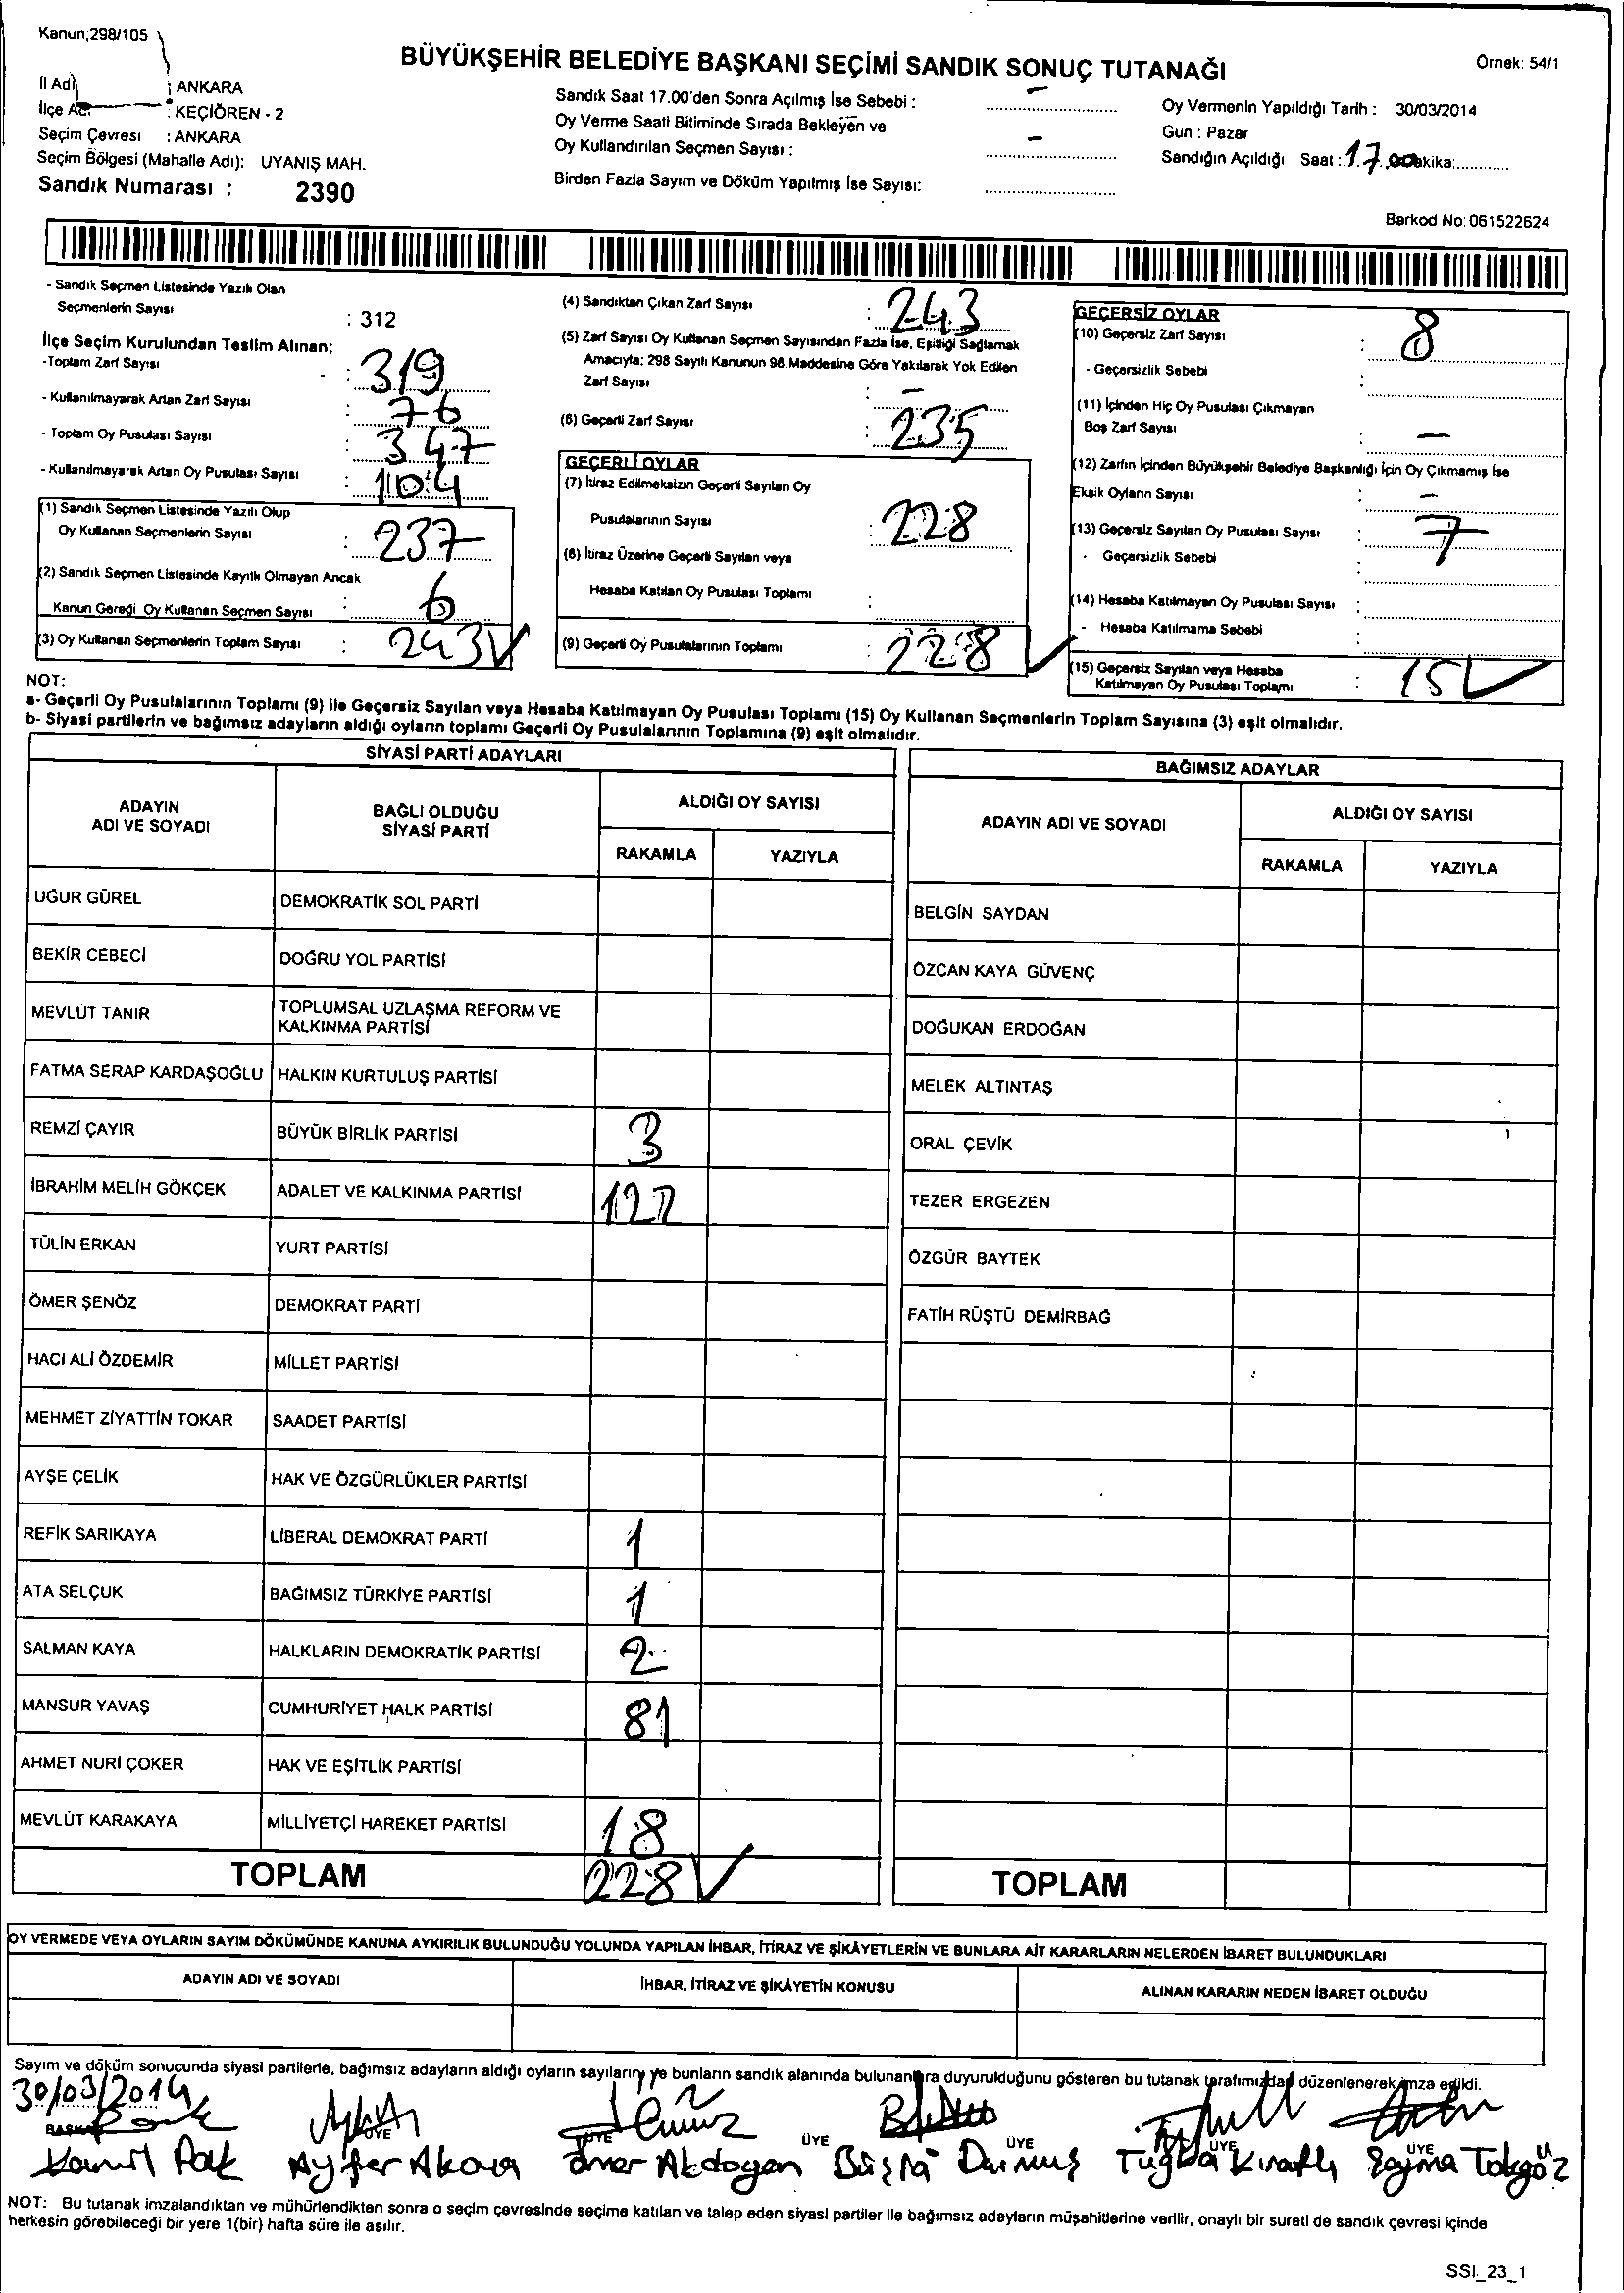 Kanun;298/105
BÜYÜKŞEHİR BELEDİYE BAŞKANI SEÇİMİ SANDIK SONUÇ TUTANAĞI
Örnek: 54/1
İl Adı : ANKARA
İlçe Adı : KEÇİÖREN - 2
Seçim Çevresi : ANKARA
Seçim Bölgesi (Mahalle Adı): UYANIŞ MAH.
Sandık Numarası : 2390
Sandık Saat 17.00'den Sonra Açılmış İse Sebebi : -
Oy Verme Saati Bitiminde Sırada Bekleyen ve
Oy Kullandırılan Seçmen Sayısı : -
Birden Fazla Sayım ve Döküm Yapılmış İse Sayısı:
Oy Vermenin Yapıldığı Tarih : 30/03/2014
Gün : Pazar
Sandığın Açıldığı Saat : 17.00 Dakika:
Barkod No: 061522624
- Sandık Seçmen Listesinde Yazılı Olan
Seçmenlerin Sayısı : 312
İlçe Seçim Kurulundan Teslim Alınan;
-Toplam Zarf Sayısı : 319
- Kullanılmayarak Artan Zarf Sayısı : 76
- Toplam Oy Pusulası Sayısı : 347
- Kullanılmayarak Artan Oy Pusulası Sayısı : 104
(1) Sandık Seçmen Listesinde Yazılı Olup
Oy Kullanan Seçmenlerin Sayısı : 237
(2) Sandık Seçmen Listesinde Kayıtlı Olmayan Ancak
Kanun Gereği Oy Kullanan Seçmen Sayısı : 6
(3) Oy Kullanan Seçmenlerin Toplam Sayısı : 243
(4) Sandıktan Çıkan Zarf Sayısı : 243
(5) Zarf Sayısı Oy Kullanan Seçmen Sayısından Fazla İse, Eşitliği Sağlamak
Amacıyla: 298 Sayılı Kanunun 98.Maddesine Göre Yakılarak Yok Edilen
Zarf Sayısı : -
(6) Geçerli Zarf Sayısı : 235
GEÇERLİ OYLAR
(7) İtiraz Edilmeksizin Geçerli Sayılan Oy
Pusulalarının Sayısı : 228
(8) İtiraz Üzerine Geçerli Sayılan veya
Hesaba Katılan Oy Pusulası Toplamı :
(9) Geçerli Oy Pusulalarının Toplamı : 228
GEÇERSİZ OYLAR
(10) Geçersiz Zarf Sayısı : 8
- Geçersizlik Sebebi :
(11) İçinden Hiç Oy Pusulası Çıkmayan
Boş Zarf Sayısı : -
(12) Zarfın İçinden Büyükşehir Belediye Başkanlığı İçin Oy Çıkmamış İse
Eksik Oyların Sayısı : -
(13) Geçersiz Sayılan Oy Pusulası Sayısı : 7
- Geçersizlik Sebebi :
(14) Hesaba Katılmayan Oy Pusulası Sayısı :
- Hesaba Katılmama Sebebi :
(15) Geçersiz Sayılan veya Hesaba
Katılmayan Oy Pusulası Toplamı : 15
NOT:
a- Geçerli Oy Pusulalarının Toplamı (9) ile Geçersiz Sayılan veya Hesaba Katılmayan Oy Pusulası Toplamı (15) Oy Kullanan Seçmenlerin Toplam Sayısına (3) eşit olmalıdır.
b- Siyasi partilerin ve bağımsız adayların aldığı oyların toplamı Geçerli Oy Pusulalarının Toplamına (9) eşit olmalıdır.
SİYASİ PARTİ ADAYLARI
ADAYIN
ADI VE SOYADI
BAĞLI OLDUĞU
SİYASİ PARTİ
ALDIĞI OY SAYISI
RAKAMLA YAZIYLA
UĞUR GÜREL DEMOKRATİK SOL PARTİ
BEKİR CEBECİ DOĞRU YOL PARTİSİ
MEVLÜT TANIR TOPLUMSAL UZLAŞMA REFORM VE
KALKINMA PARTİSİ
FATMA SERAP KARDAŞOĞLU HALKIN KURTULUŞ PARTİSİ
REMZİ ÇAYIR BÜYÜK BİRLİK PARTİSİ 3
İBRAHİM MELİH GÖKÇEK ADALET VE KALKINMA PARTİSİ 122
TÜLİN ERKAN YURT PARTİSİ
ÖMER ŞENÖZ DEMOKRAT PARTİ
HACI ALİ ÖZDEMİR MİLLET PARTİSİ
MEHMET ZİYATTİN TOKAR SAADET PARTİSİ
AYŞE ÇELİK HAK VE ÖZGÜRLÜKLER PARTİSİ
REFİK SARIKAYA LİBERAL DEMOKRAT PARTİ 1
ATA SELÇUK BAĞIMSIZ TÜRKİYE PARTİSİ 1
SALMAN KAYA HALKLARIN DEMOKRATİK PARTİSİ 2
MANSUR YAVAŞ CUMHURİYET HALK PARTİSİ 81
AHMET NURİ ÇOKER HAK VE EŞİTLİK PARTİSİ
MEVLÜT KARAKAYA MİLLİYETÇİ HAREKET PARTİSİ 18
TOPLAM 228
BAĞIMSIZ ADAYLAR
ADAYIN ADI VE SOYADI
ALDIĞI OY SAYISI
RAKAMLA YAZIYLA
BELGİN SAYDAN
ÖZCAN KAYA GÜVENÇ
DOĞUKAN ERDOĞAN
MELEK ALTINTAŞ
ORAL ÇEVİK
TEZER ERGEZEN
ÖZGÜR BAYTEK
FATİH RÜŞTÜ DEMİRBAĞ
TOPLAM
OY VERMEDE VEYA OYLARIN SAYIM DÖKÜMÜNDE KANUNA AYKIRILIK BULUNDUĞU YOLUNDA YAPILAN İHBAR, İTİRAZ VE ŞİKÂYETLERİN VE BUNLARA AİT KARARLARIN NELERDEN İBARET BULUNDUKLARI
ADAYIN ADI VE SOYADI
İHBAR, İTİRAZ VE ŞİKÂYETİN KONUSU
ALINAN KARARIN NEDEN İBARET OLDUĞU
Sayım ve döküm sonucunda siyasi partilerle, bağımsız adayların aldığı oyların sayılarını ve bunların sandık alanında bulunanlara duyurulduğunu gösteren bu tutanak tarafımızdan düzenlenerek imza edildi.
30/03/2014
BAŞKAN ÜYE ÜYE ÜYE ÜYE ÜYE ÜYE
Kamil Pak Ayfer Akova Ömer Akdogan Büşra Durmuş Tuğba Kıratlı Sayma Tokgöz
NOT: Bu tutanak imzalandıktan ve mühürlendikten sonra o seçim çevresinde seçime katılan ve talep eden siyasi partiler ile bağımsız adayların müşahitlerine verilir, onaylı bir sureti de sandık çevresi içinde
herkesin görebileceği bir yere 1(bir) hafta süre ile asılır.
SSI_23_1